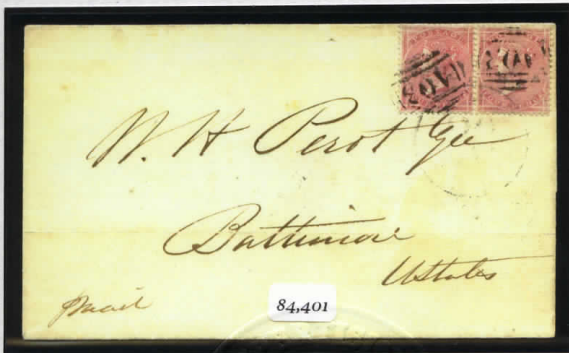 W. H Perot Esq
Baltimore
UStates
Mail
84,401